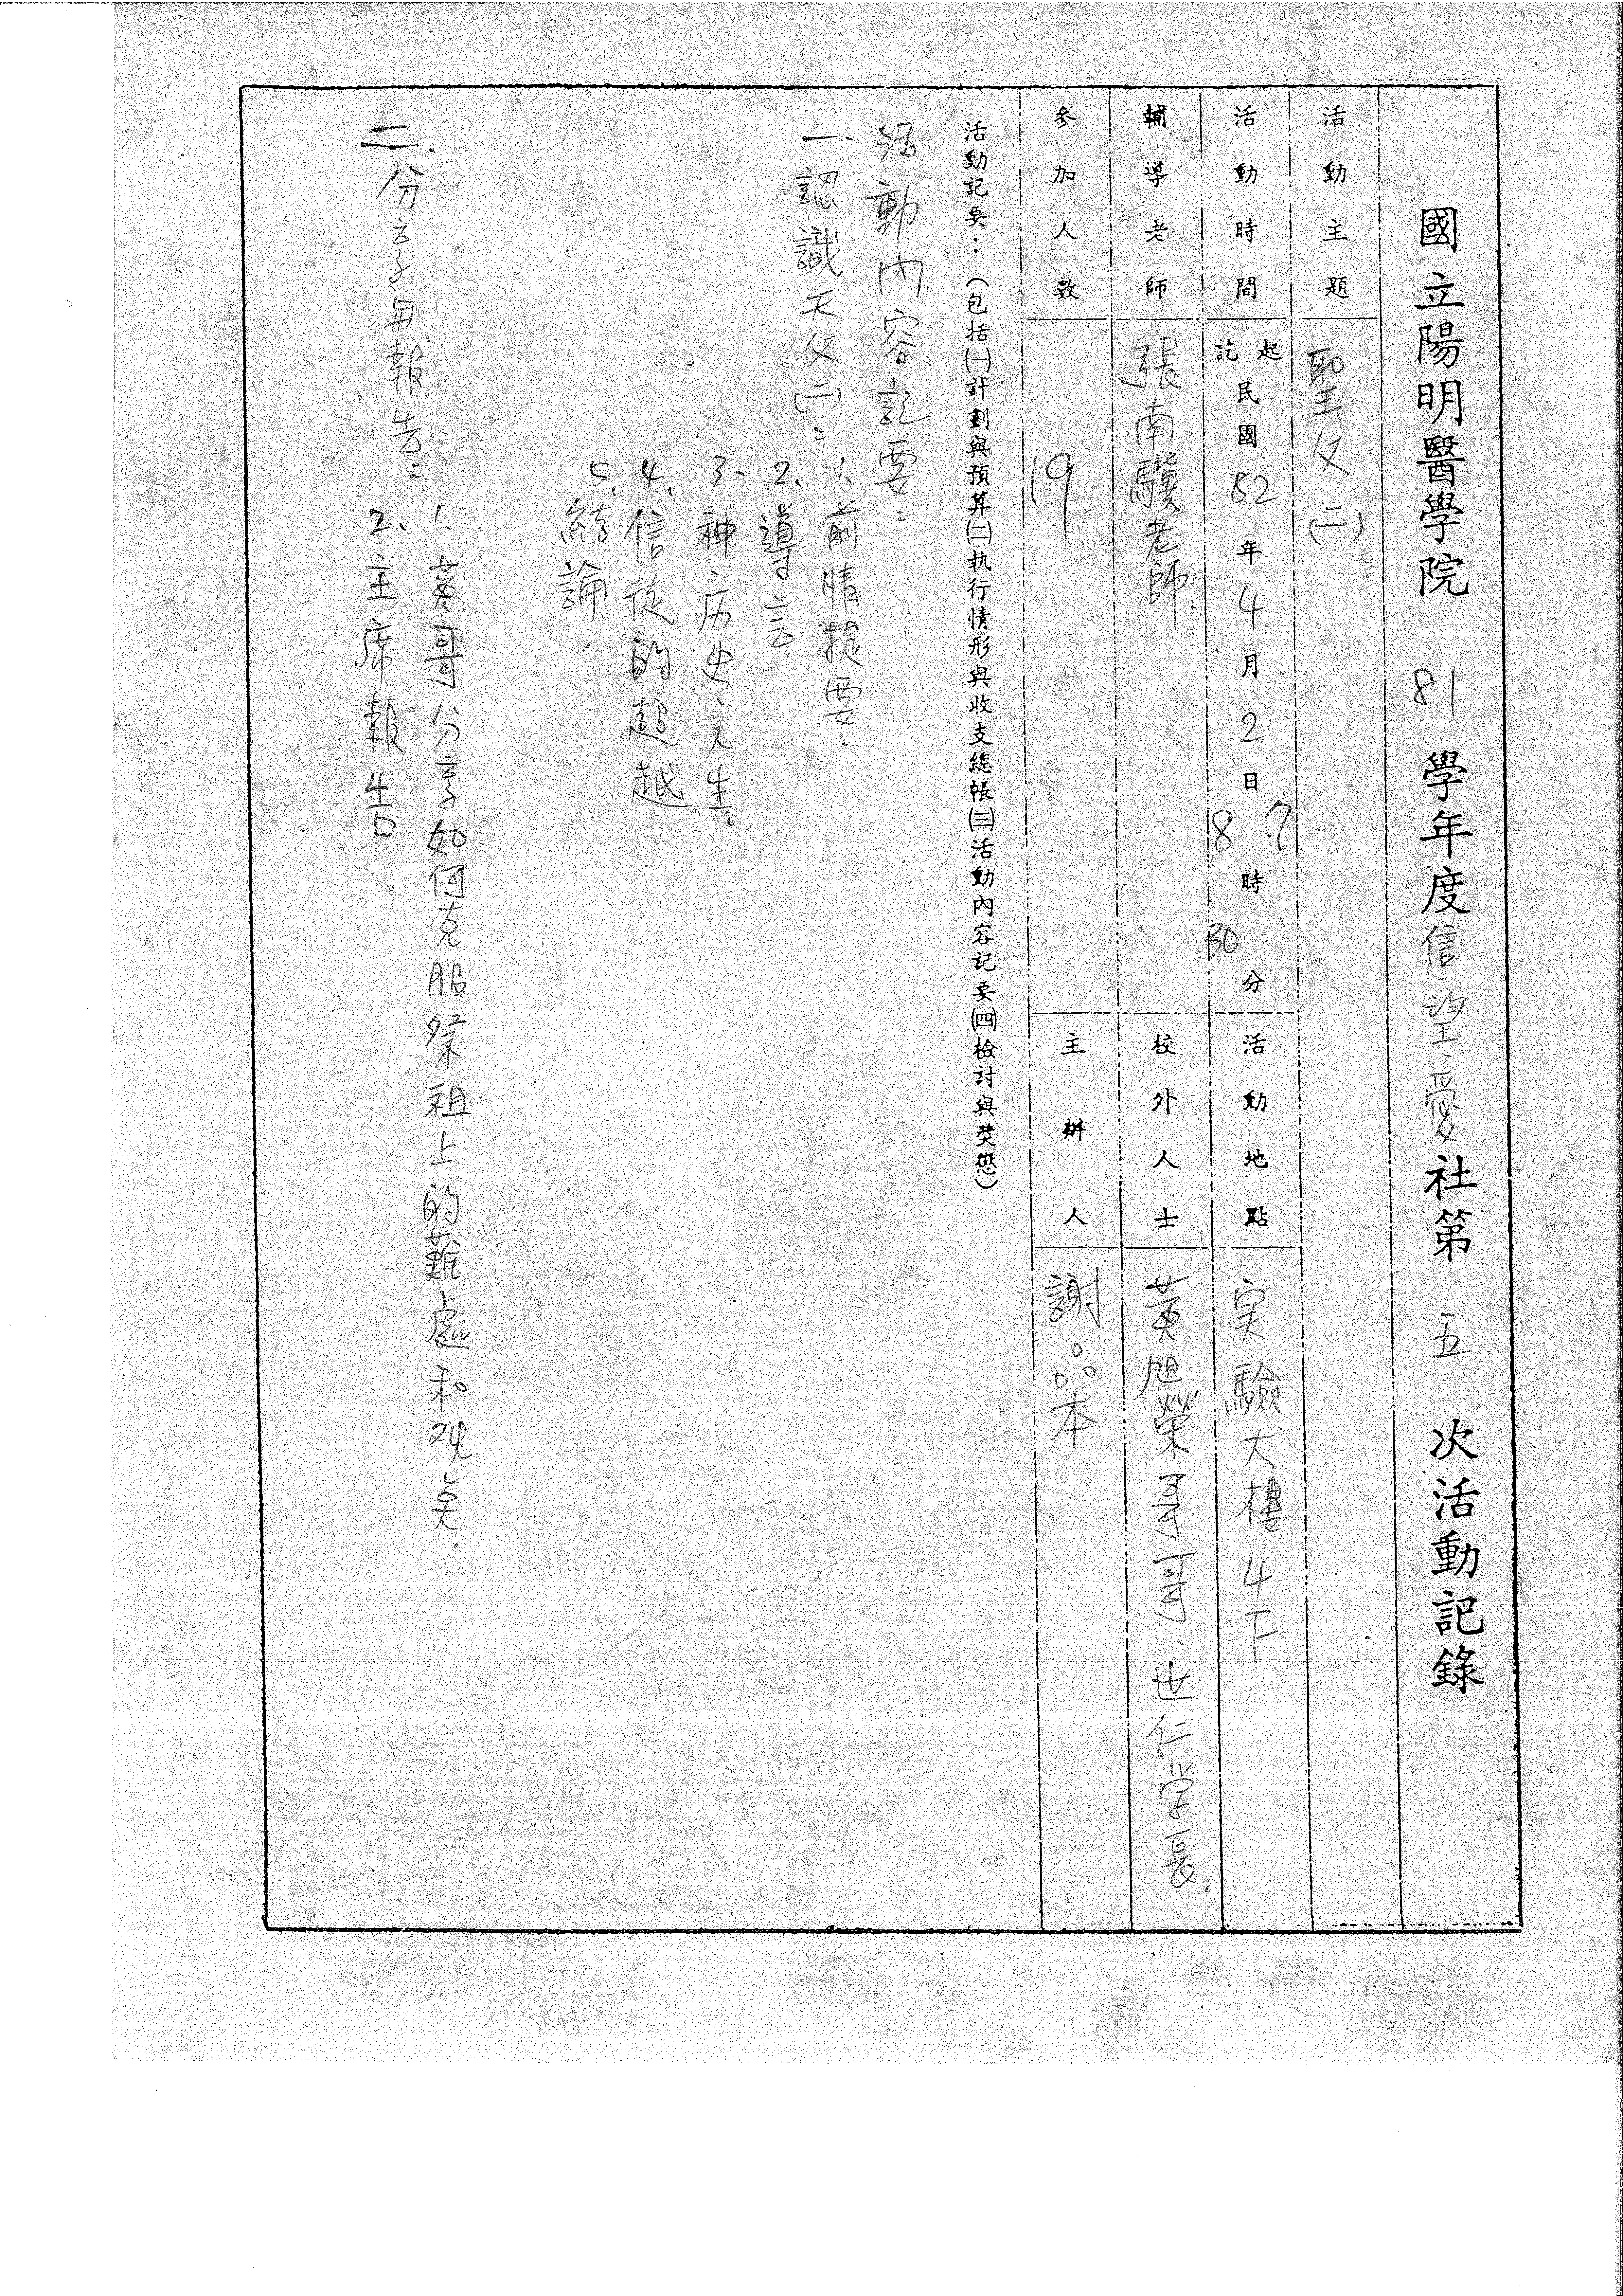 國立陽明醫學院 81 學年度信、望、愛社第 五 次活動記錄
活動主題 聖父(二)
活動時間 起訖 民國 82 年 4 月 2 日 7 8 時 30 分
活動地點 実驗大樓4下
輔導老師 張南驥老師.
校外人士 黃旭榮哥哥、世仁学長.
參加人數 19
主辦人 謝品本
活動記要：（包括㈠計劃與預算㈡执行情形與收支總帳㈢活動內容記要㈣檢討與獎懲）
活動內容記要：
一、認識天父(二)：
1、前情提要.
2、導言
3、神、历史、人生.
4、信徒的超越
5、結論.
二、分享与報告：
1、黃哥分享如何克服祭祖上的難處和观矣.
2、主席報告